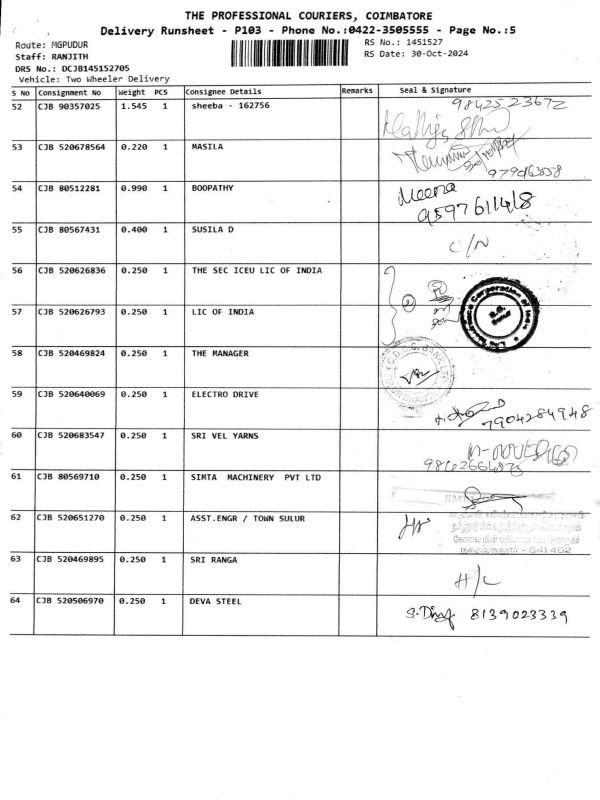 THE PROFESSIONAL COURIERS, COIMBATORE
Delivery Runsheet - P103 - Phone No.:0422-3505555 - Page No.:5
Route: MGPUDUR
RS No.: 1451527
Staff: RANJITH
RS Date: 30-Oct-2024
DRS No.: DCJB145152705
Vehicle: Two Wheeler Delivery
S No Consignment No Weight PCS Consignee Details Remarks Seal & Signature
52 CJB 90357025 1.545 1 sheeba - 162756 98425 23672
53 CJB 520678564 0.220 1 MASILA
54 CJB 80512281 0.990 1 BOOPATHY Meena
9597611418
55 CJB 80567431 0.400 1 SUSILA D C/N
56 CJB 520626836 0.250 1 THE SEC ICEU LIC OF INDIA
57 CJB 520626793 0.250 1 LIC OF INDIA
58 CJB 520469824 0.250 1 THE MANAGER
59 CJB 520640069 0.250 1 ELECTRO DRIVE 7904284948
60 CJB 520683547 0.250 1 SRI VEL YARNS
61 CJB 80569710 0.250 1 SIMTA MACHINERY PVT LTD
62 CJB 520651270 0.250 1 ASST.ENGR / TOWN SULUR
641 402
63 CJB 520469895 0.250 1 SRI RANGA H/L
64 CJB 520506970 0.250 1 DEVA STEEL 8139023339